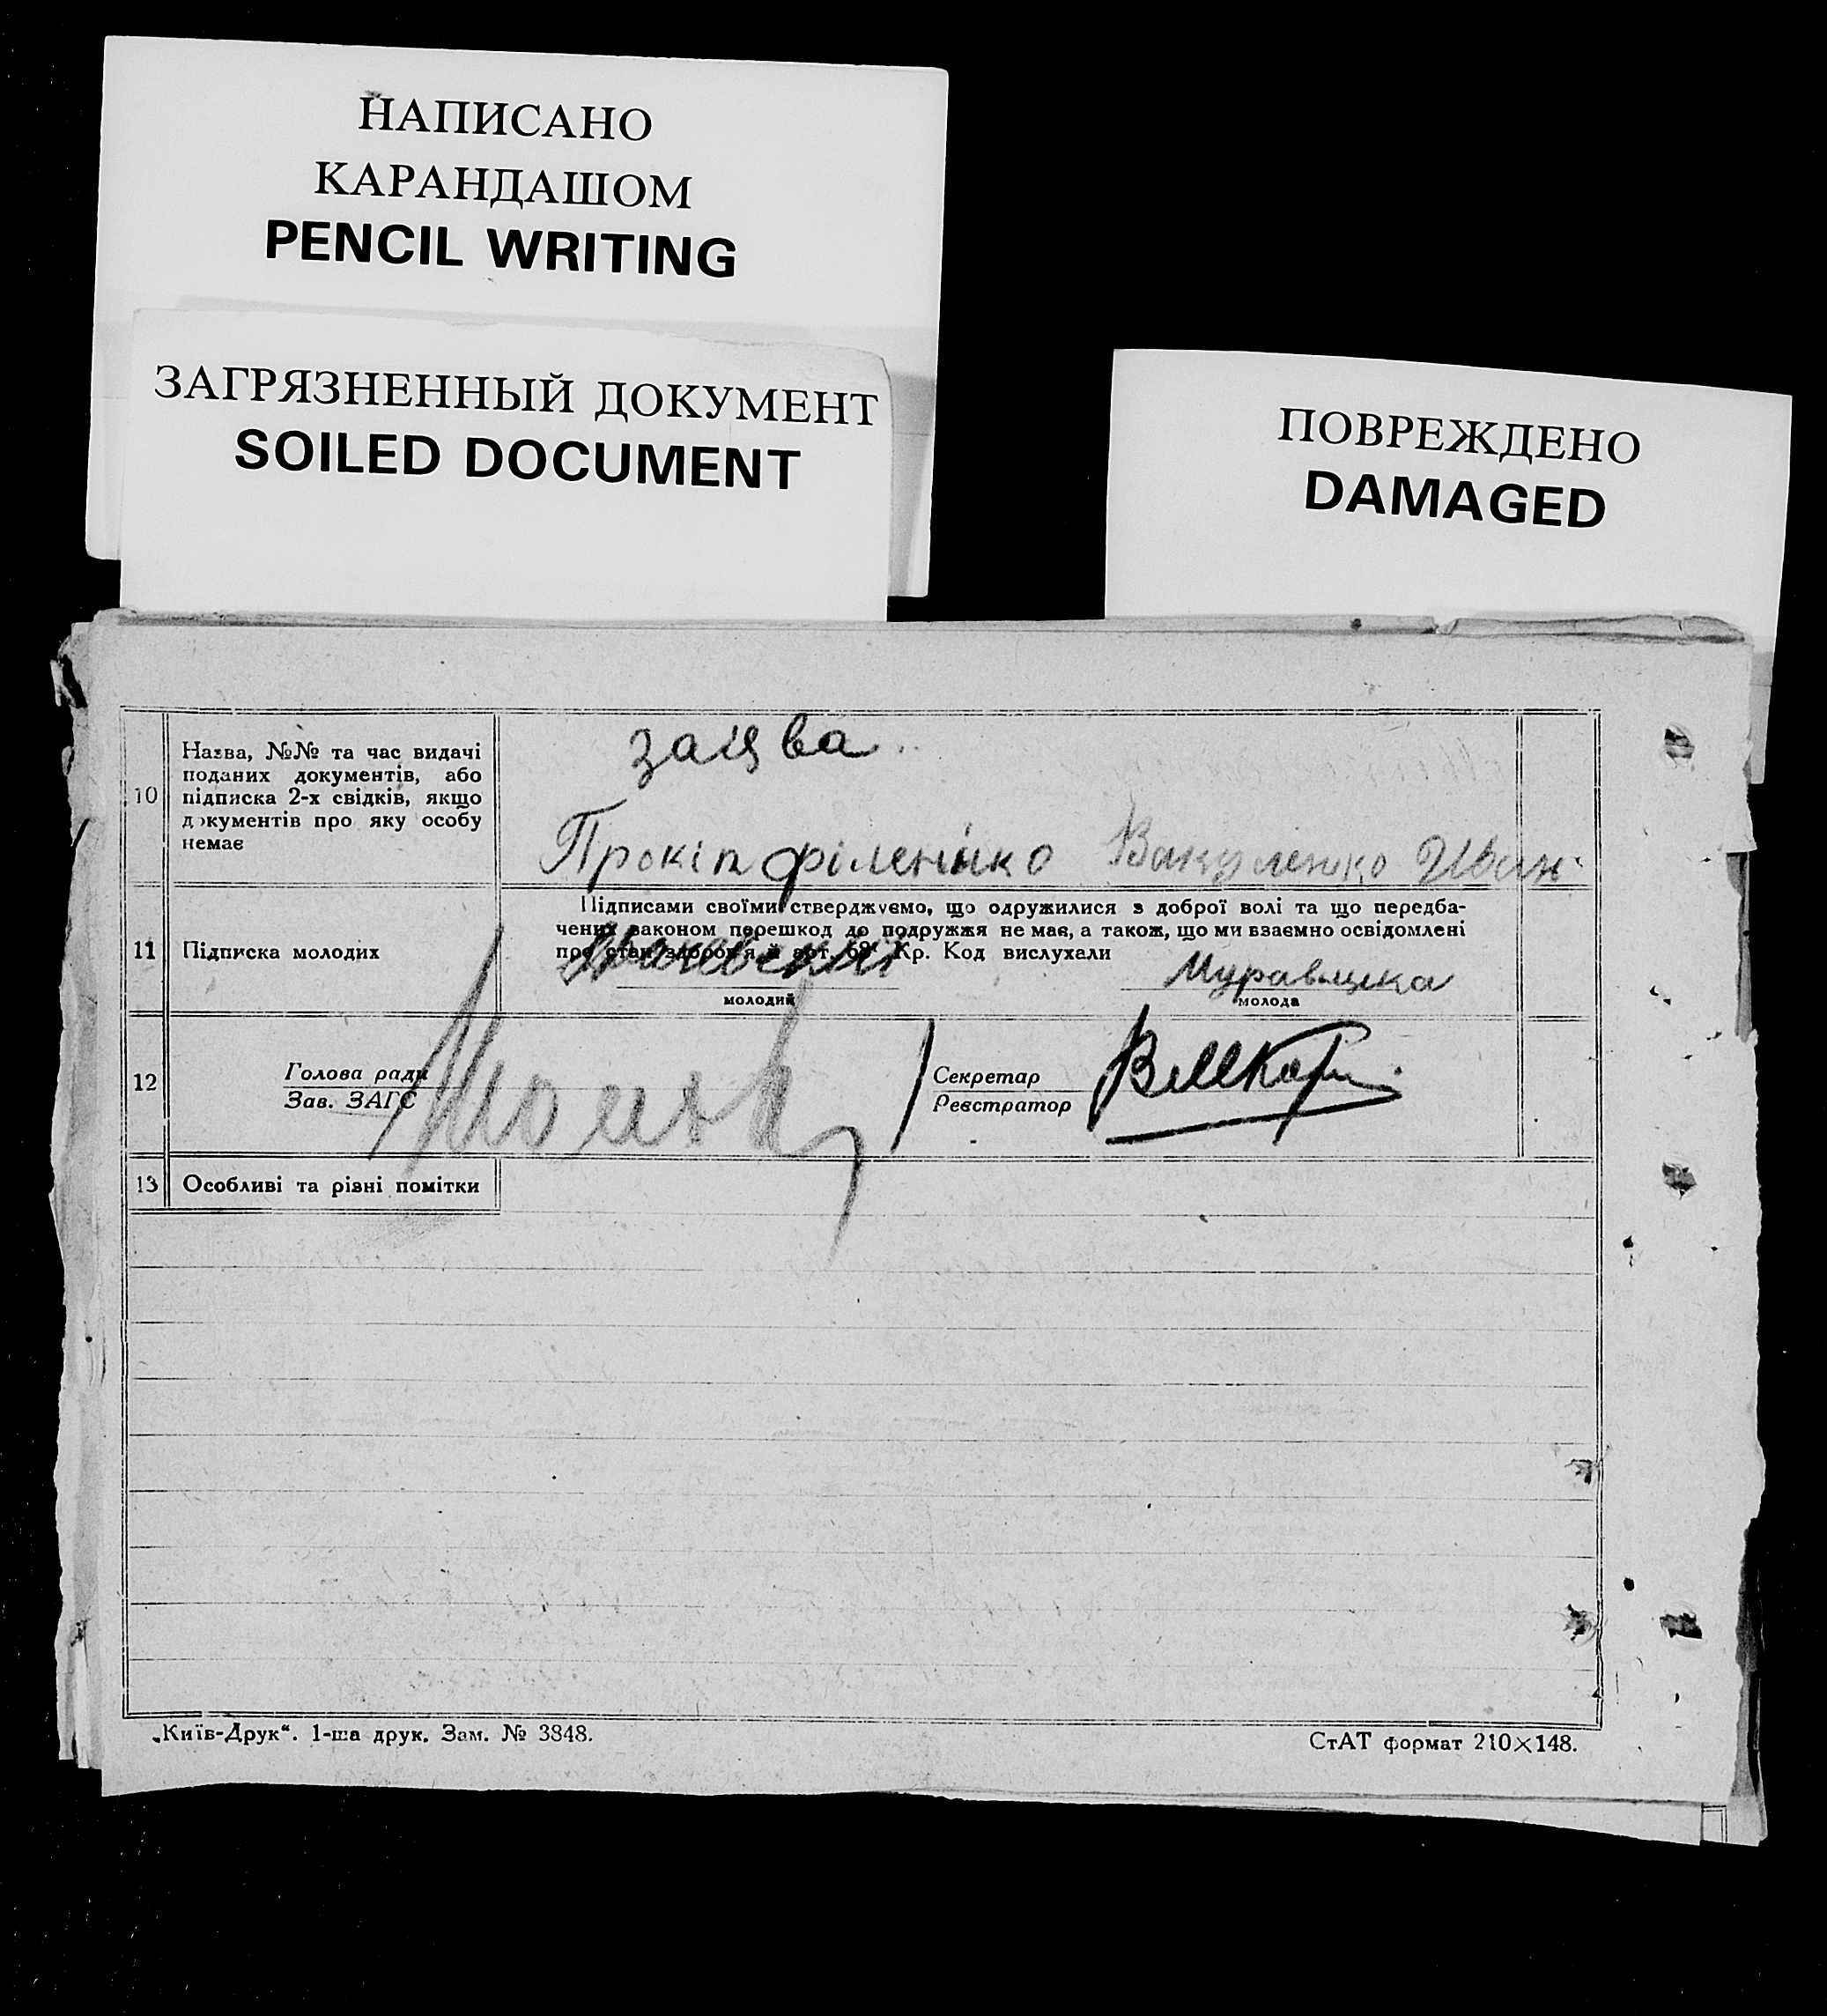 НАПИСАНО
КАРАНДАШОМ
PENCIL WRITING
ЗАГРЯЗНЕННЫЙ ДОКУМЕНТ
SOILED DOCUMENT
ПОВРЕЖДЕНО
DAMAGED
10
Назва, №№ та час видачі
поданих документів, або
підписка 2-х свідків, якщо
документів про яку особу
немає
заява
Прокіп філенко Вакуленко Иван
11
Підписка молодих
Підписами своїми стверджуємо, що одружилися з доброї волі та що передба-
чених законом перешкод до подружжя не має, а також, що ми взаємно освідомлені
про стан здоров'я й арт. 68 Кр. Код вислухали
Муравицка
молодий
молода
12
Голова ради
Зав. ЗАГС
Секретар
Реєстратор
13
Особливі та різні помітки
„Київ-Друк“. 1-ша друк. Зам. № 3848.
СтАТ формат 210×148.